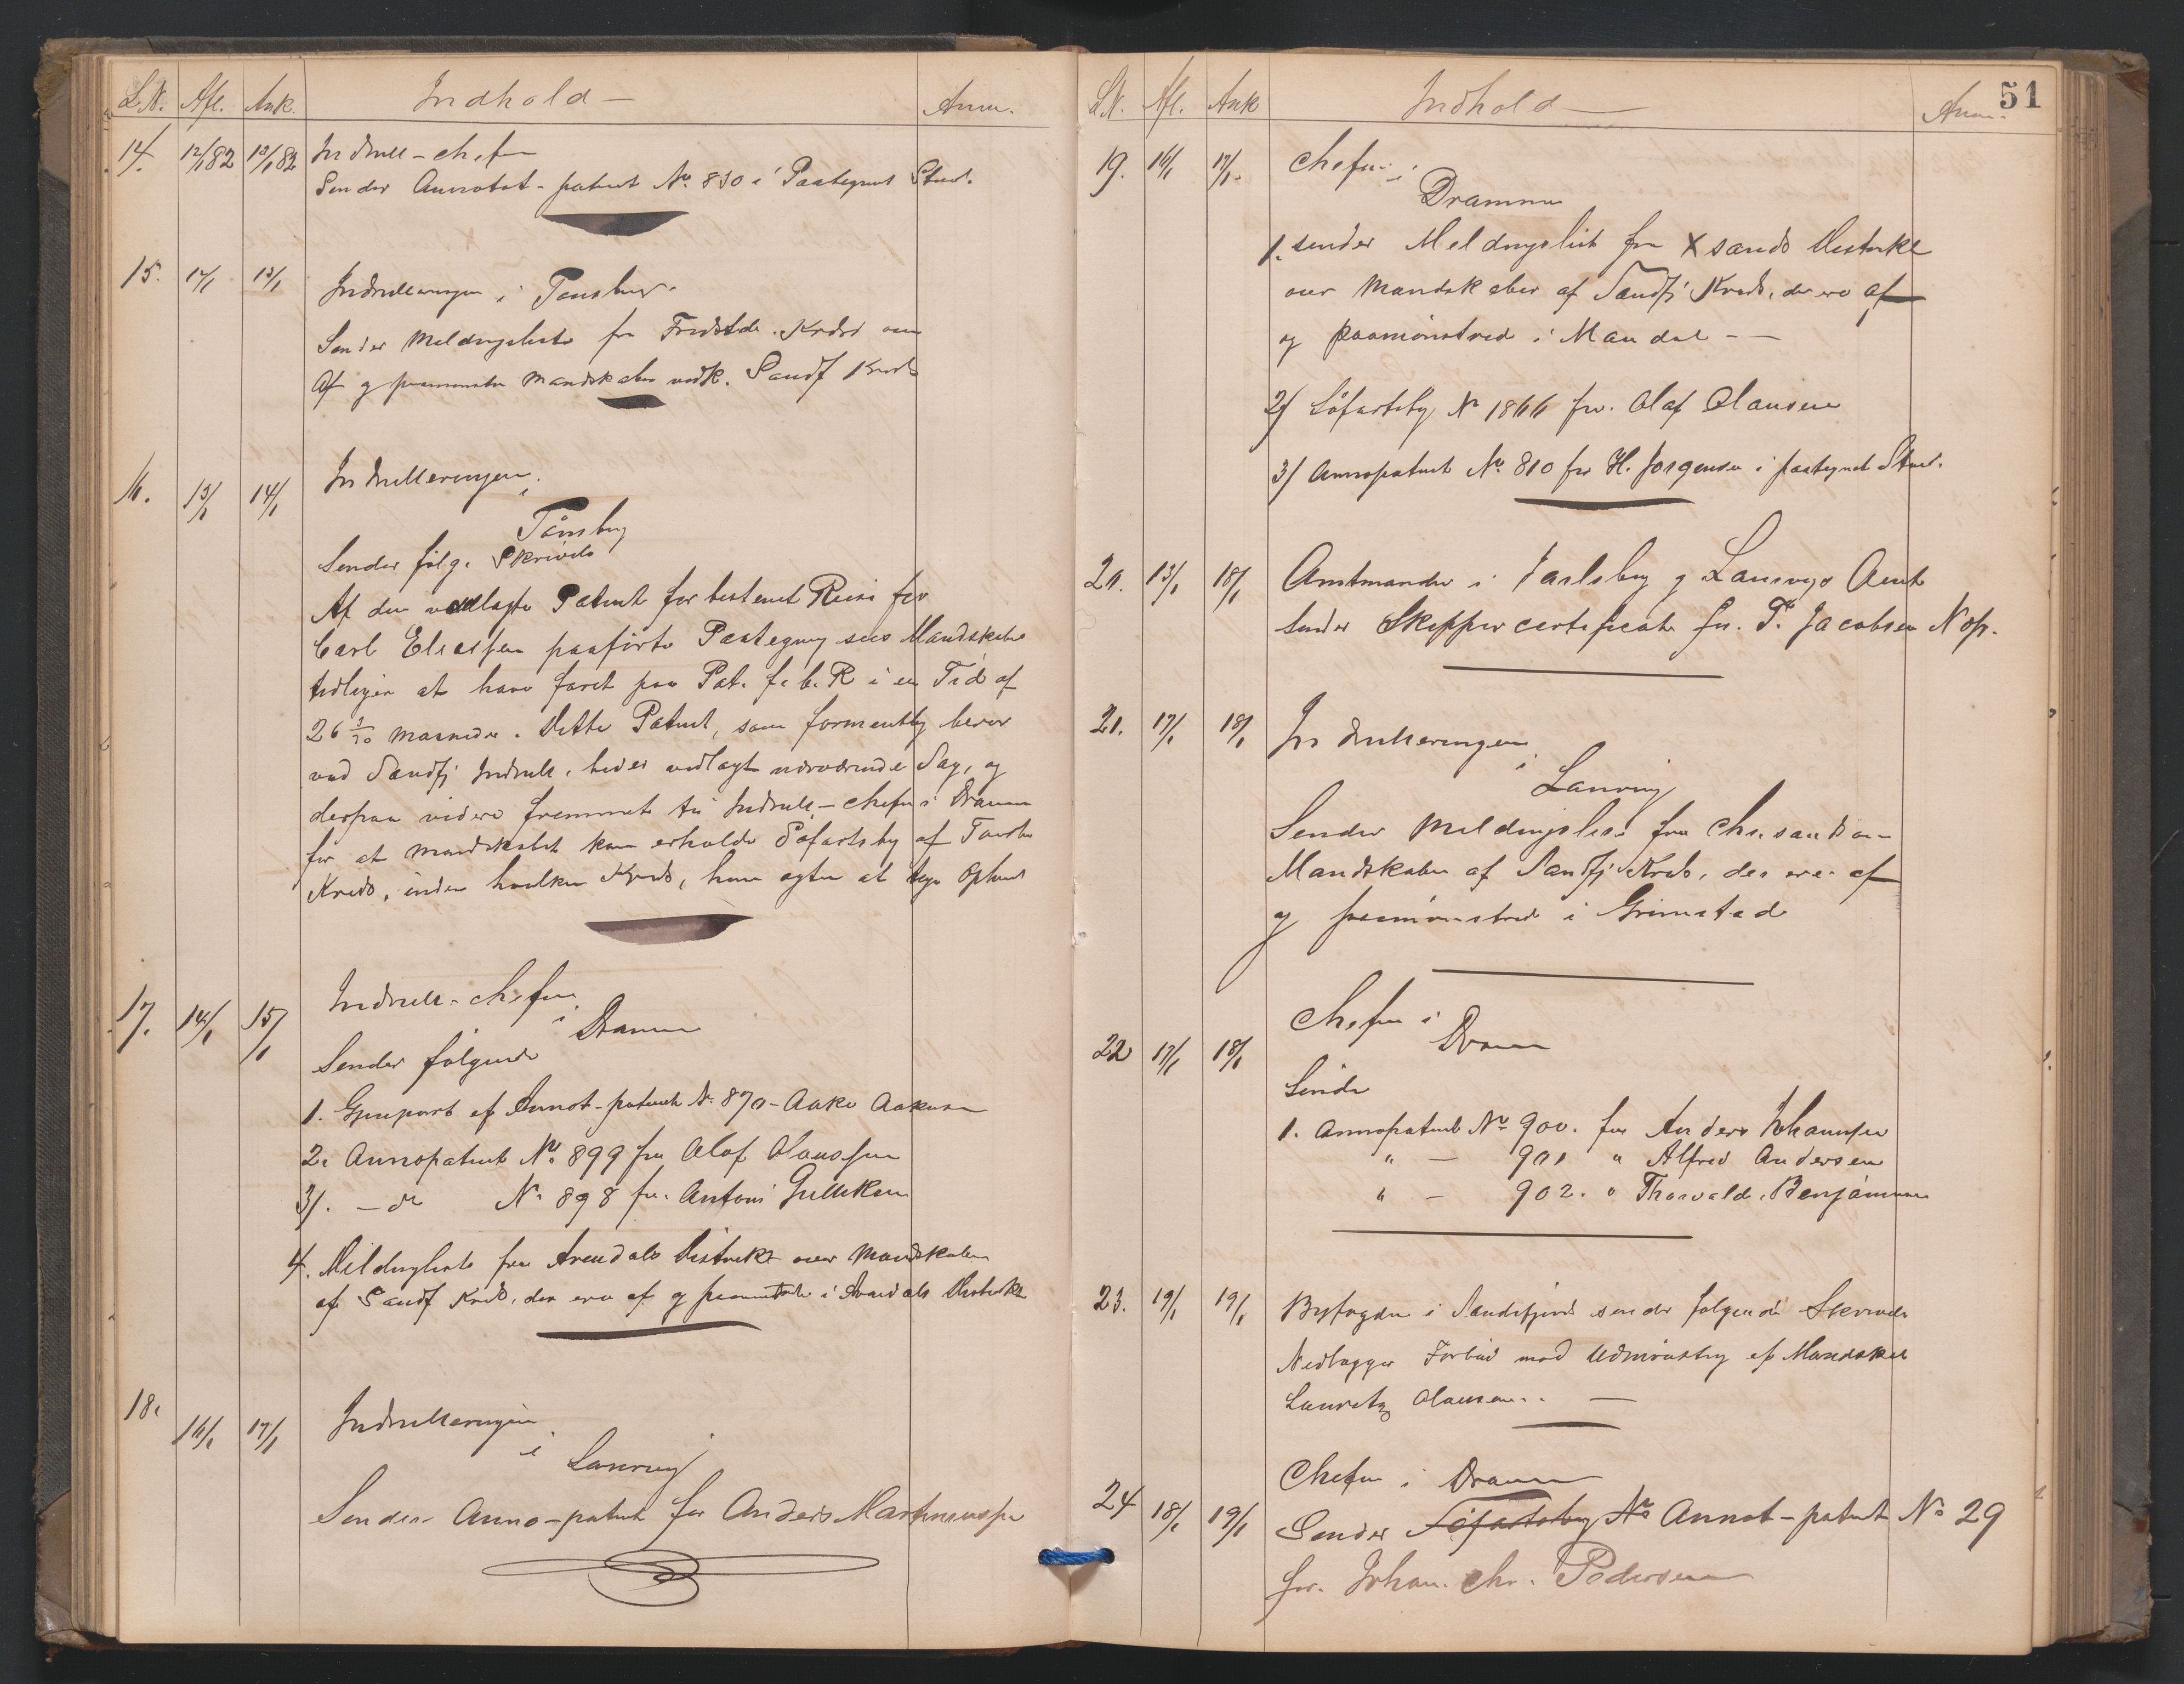 L.N. Afl. Ank. Indhold — Anm.
14. 12/1 82 13/1 82 Indrull-chefen
Sender Annotat-patent No 830 i Paategnet Stand.
15. 12/1 13/1 Indrulleringen i Tønsberg.
Sender Meldingsliste fra Fredst. Kreds over
Af og paamønstr Mandskaber vedk. Sandf Kreds
16. 13/1 14/1 Indrulleringen
i
Tønsberg
Sender følg. Skrivelse
Af den vedlagte Patent for bestemt Reise for
Carl Eliassen paaførte Paategning sees Mandskabet
tidligere at have faret paa Pat. f. b. R i en Tid af
26 3/10 Maaneder. Dette Patent, som formentlig beror
ved Sandfj Indrull. bedes vedlagt nærværende Sag, og
derpaa videre fremmet til Indrull-chefen i Dramm
for at Mandskabet kan erholde Søfartsbog af Tønsb
Kreds, inden hvilken Kreds, han agter at tage Ophold
17. 14/1 15/1 Indrull-chefen
i Dramm
Sender følgende
1. Gjenpart af Annot-patent N. 870 - Aake Aakesen
2. Annopatent No 899 for Olaf Olaussen
3/. - do No 898 for Anton Gulliksen
4. Meldingliste fra Arendals Distrikt over Mandskaber
af Sandf Kreds, der ere af og paamønstrede i Arendals Distrikt
18. 16/1 17/1 Indrulleringen
i Laurvig
Sender Anno-patent for Anders Martinsen
51
L.N. Afl. Ank Indhold — Anm.
19. 16/1 17/1 Chefen i
Drammen
1. sender Meldingslist fra Xsands Distrikt
over Mandskaber af Sandfj Kreds, der ere af
og paamönstred i Mandal - -
2/ Söfartsbg No 1866 for Olaf Olausen
3/ Annopatent No 810 for H. Jörgensen i paategnet Stand.
20. 13/1 18/1 Amtmanden i Jarlsberg og Laurvigs Amt
Sender Skippercertificate for T. Jacobsen N op.
21. 17/1 18/1 Indrulleringen
i
Laurvig
Sender Meldingslist fra Chr.sand over
Mandskaber af Sandfj Kreds, der ere af
og paamönstred i Grimstad
22 17/1 18/1 Chefen i
Dramm
Sender
1. Annopatent No 900. for Anders Johannsen
" — 901 " Alfred Andersen
" — 902. " Thorvald Benjaminsen
23. 19/1 19/1 Byfogden i Sandefjord sender følgende Skrivelse
Nedlægger Forbud mod Udmönstring af Mandskab
Lauretz Olausen. . —
24 18/1 19/1 Chefen i Dramm
Sender Söfartsbog No Annot-patent No 29
for. Johan. Chr. Pedersen